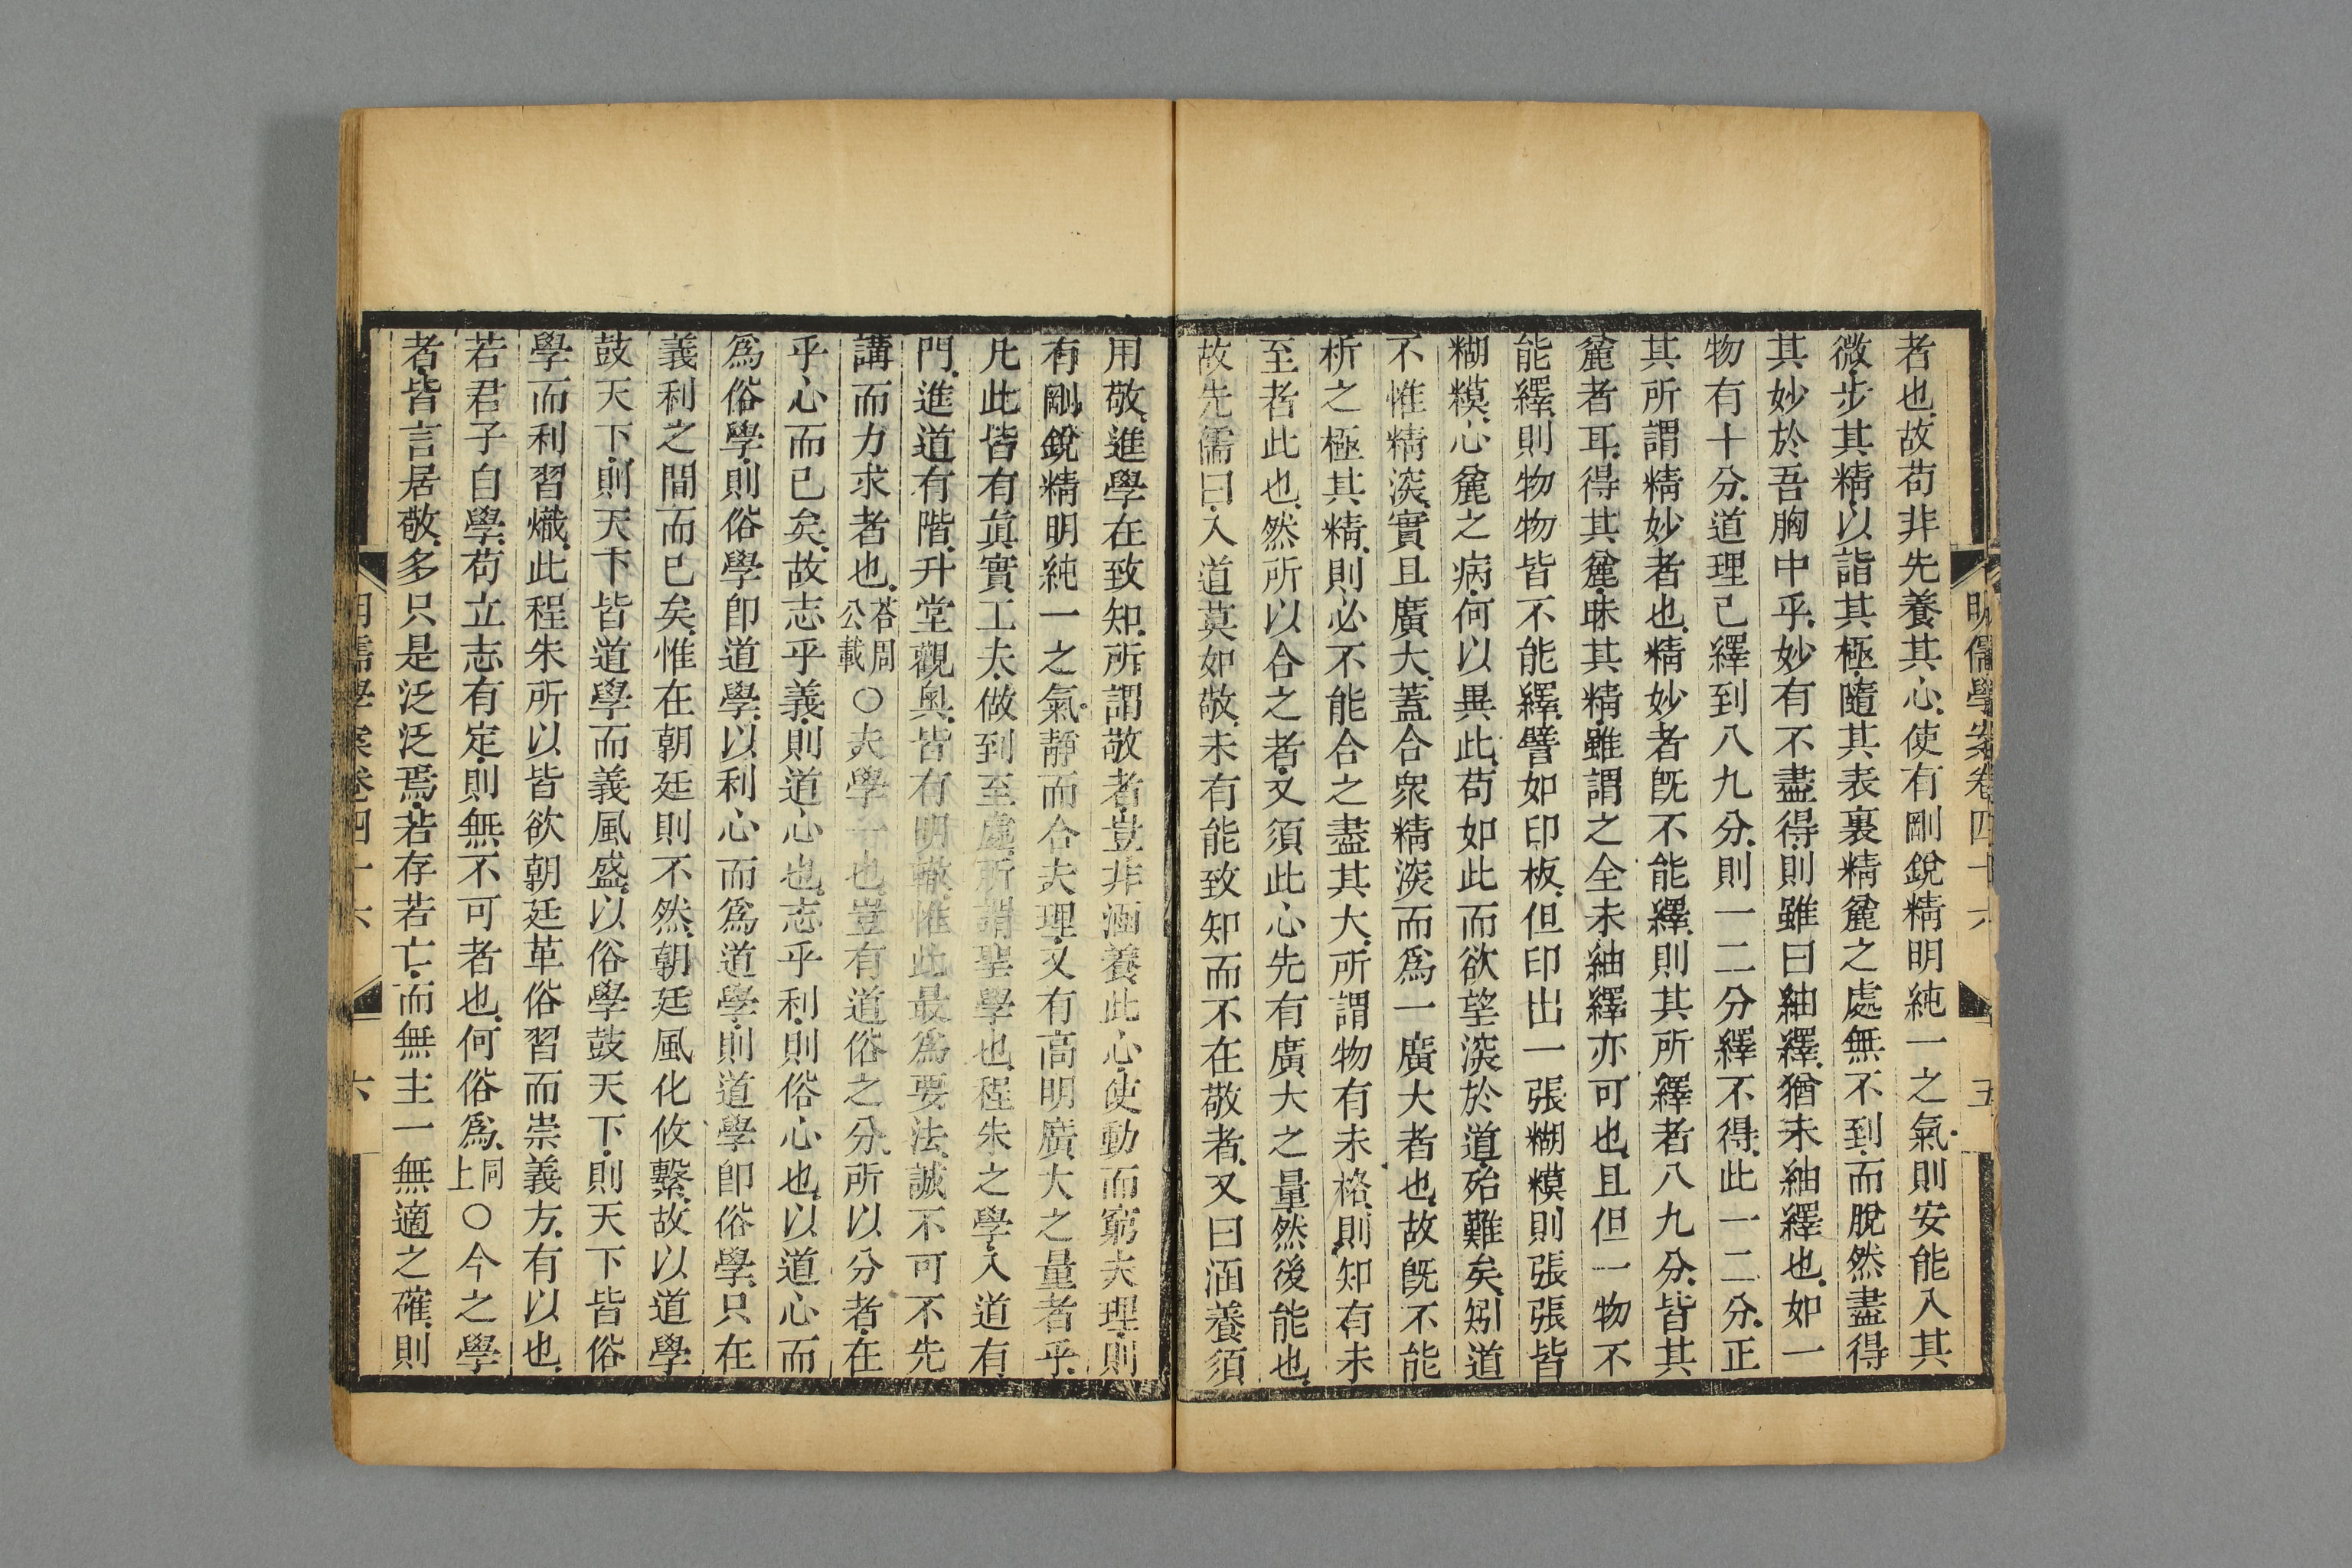 明儒學案卷四十六 五
者也故苟非先養其心使有剛銳精明純一之氣則安能入其
微步其精以詣其極隨其表裏精麄之處無不到而脫然盡得
其妙於吾胸中乎妙有不盡得則雖曰紬繹猶未紬繹也如一
物有十分道理已繹到八九分則一二分繹不得此一二分正
其所謂精妙者也精妙者旣不能繹則其所繹者八九分皆其
麄者耳得其麄昧其精雖謂之全未紬繹亦可也且但一物不
能繹則物物皆不能繹譬如印板但印出一張糊模則張張皆
糊模心麄之病何以異此苟如此而欲望深於道殆難矣矧道
不惟精深實且廣大蓋合衆精深而爲一廣大者也故旣不能
析之極其精則必不能合之盡其大所謂物有未格則知有未
至者此也然所以合之者又須此心先有廣大之量然後能也
故先儒曰入道莫如敬未有能致知而不在敬者又曰涵養須
用敬進學在致知所謂敬者豈非涵養此心使動而窮夫理則
有剛銳精明純一之氣靜而合夫理又有高明廣大之量者乎
凡此皆有眞實工夫做到至處所謂聖學也程朱之學入道有
門進道有階升堂觀奧皆有明轍惟此最爲要法誠不可不先
講而力求者也答周公載○夫學一也豈有道俗之分所以分者在
乎心而已矣故志乎義則道心也志乎利則俗心也以道心而
爲俗學則俗學卽道學以利心而爲道學則道學卽俗學只在
義利之間而已矣惟在朝廷則不然朝廷風化攸繫故以道學
鼓天下則天下皆道學而義風盛以俗學鼓天下則天下皆俗
學而利習熾此程朱所以皆欲朝廷革俗習而崇義方有以也
若君子自學苟立志有定則無不可者也何俗爲同上○今之學
者皆言居敬多只是泛泛焉若存若亡而無主一無適之確則
明儒學案卷四十六 六